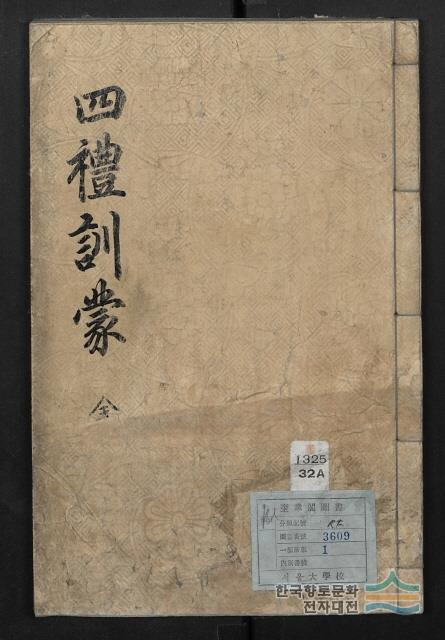 四禮訓蒙
全
1325
32A
奎章閣圖書
分類記號
圖書番號 3609
一部冊數 1
內別番號
서울大學校
한국향토문화
전자대전